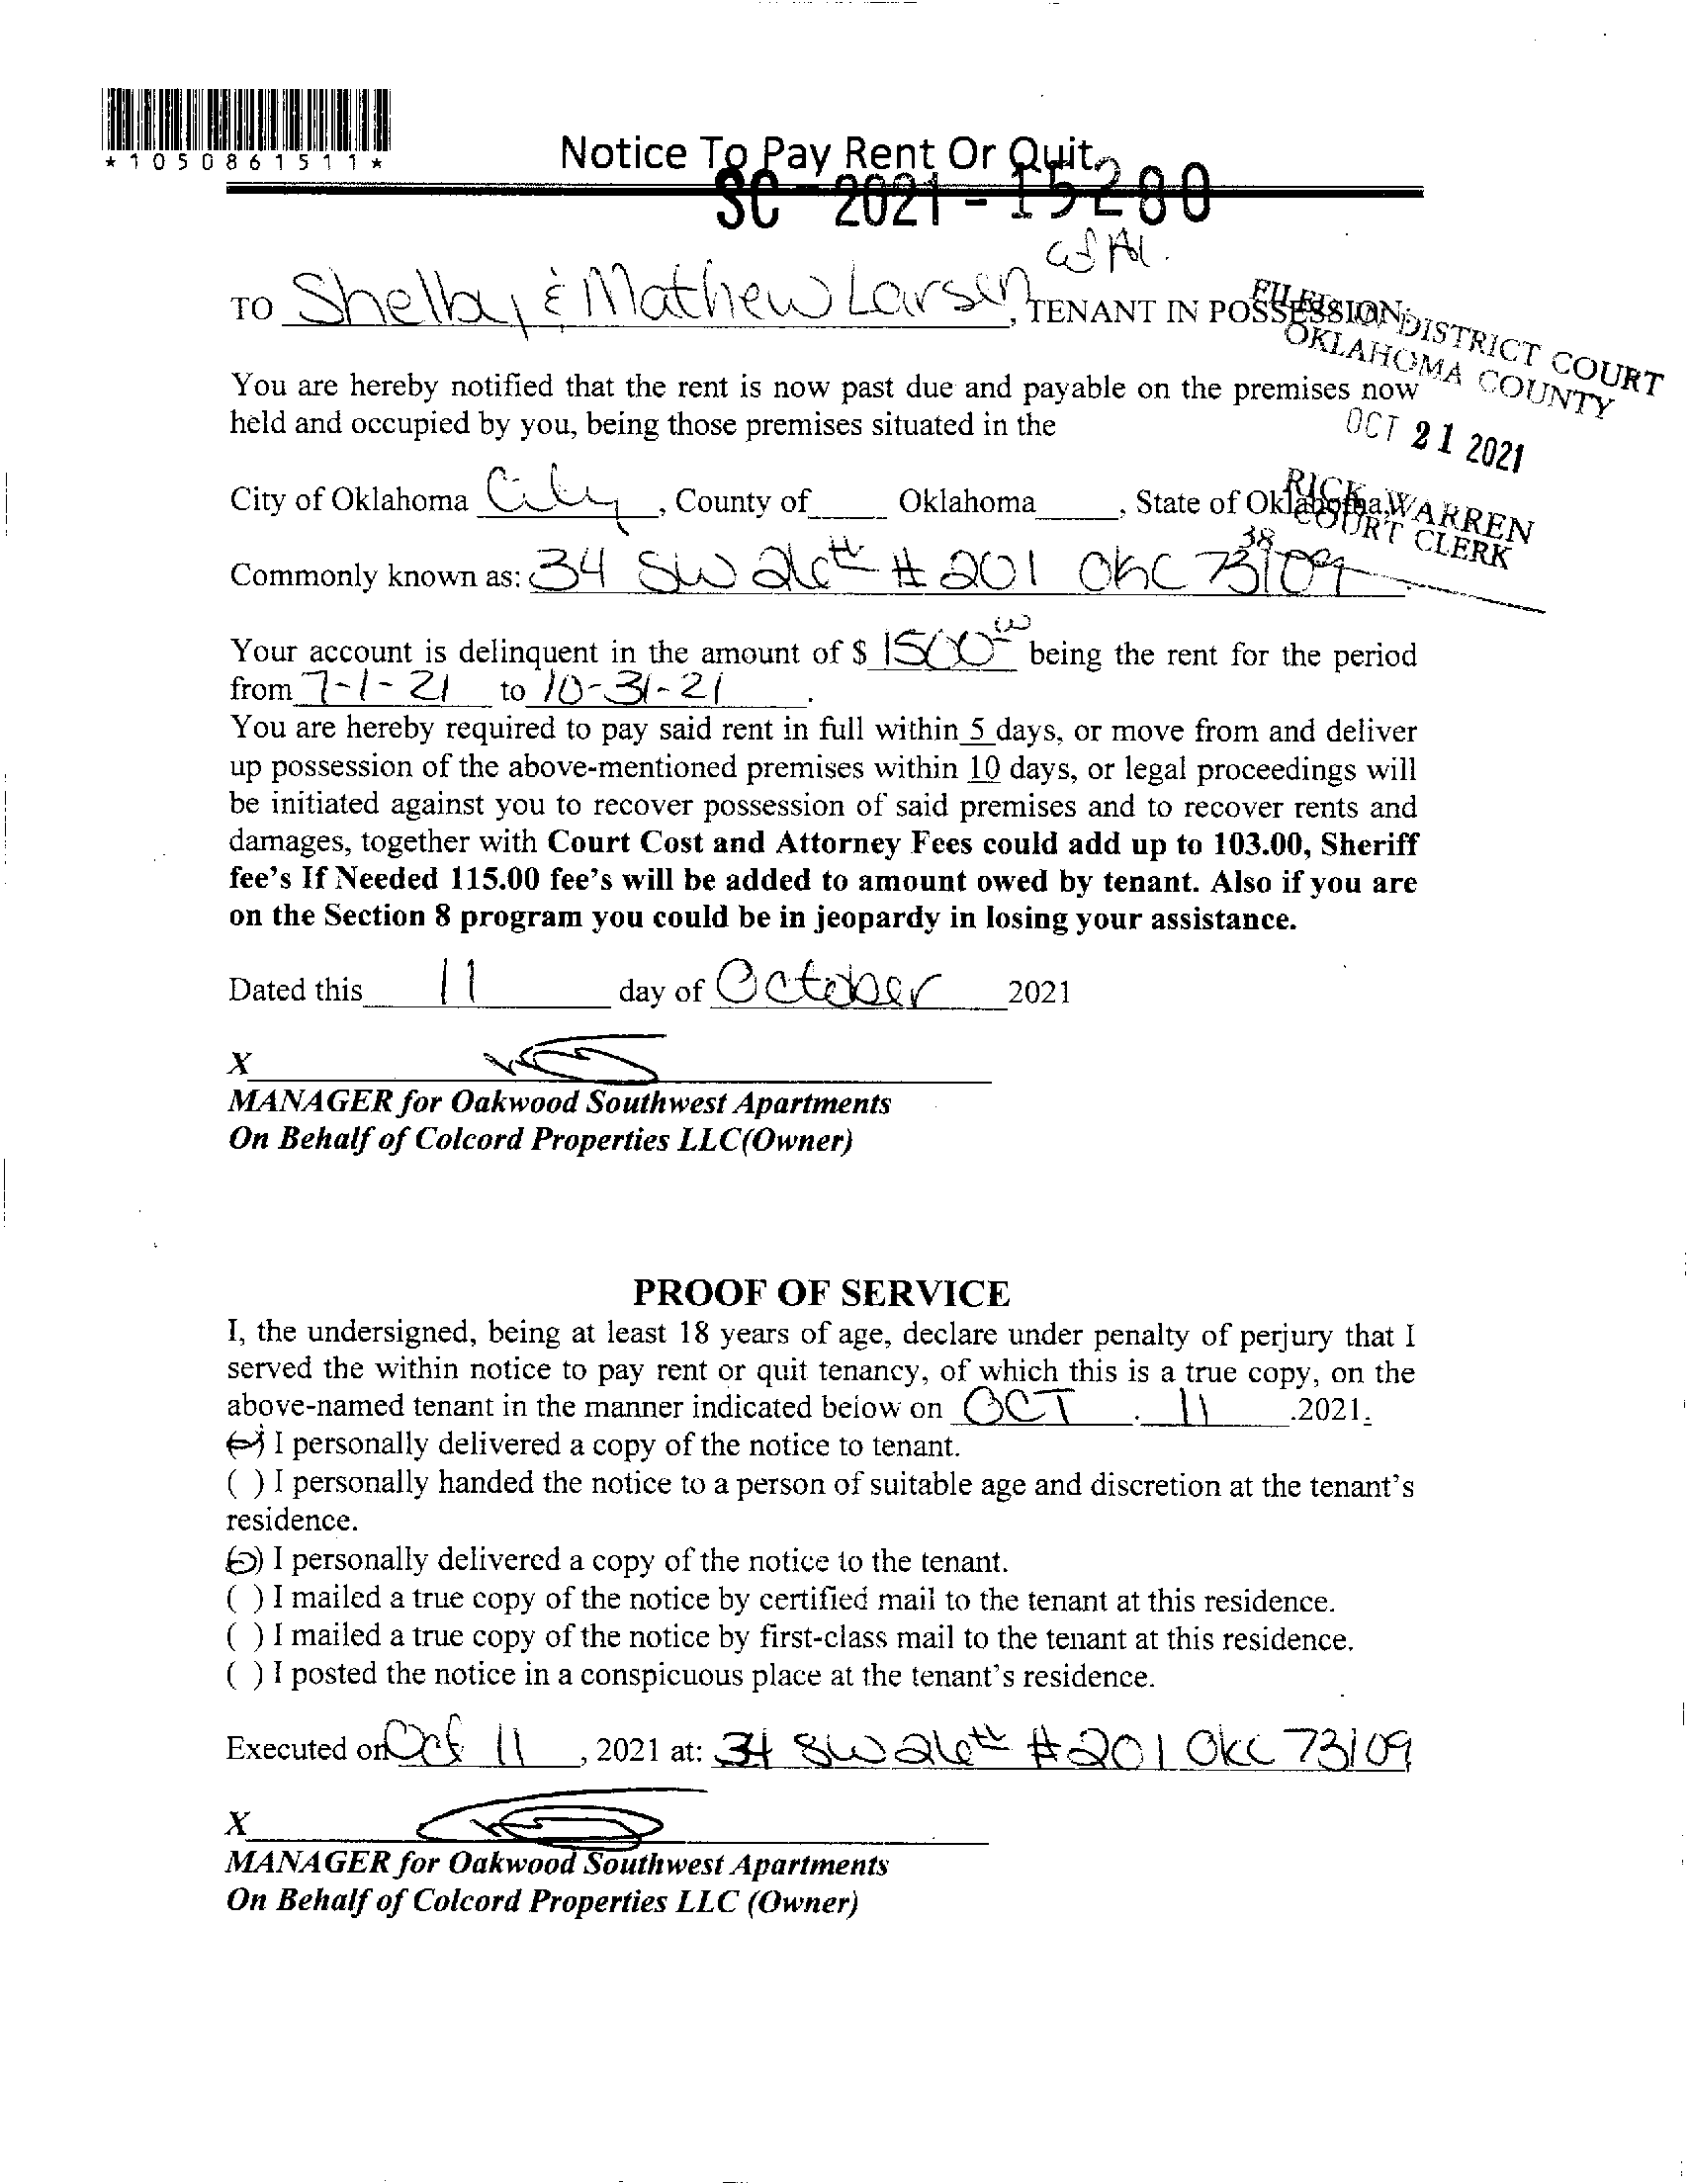 *1050861511*
Notice To Pay Rent Or Quit
SC - 2021 - 15280
et Al.
TO Shelby & Mathew Larsen, TENANT IN POSSESSION:
FILED IN DISTRICT COURT
OKLAHOMA COUNTY
You are hereby notified that the rent is now past due and payable on the premises now
held and occupied by you, being those premises situated in the
OCT 21 2021
City of Oklahoma City, County of Oklahoma, State of Oklahoma,
RICK WARREN
COURT CLERK
38
Commonly known as: 34 SW 26th # 201 OKC 73109
Your account is delinquent in the amount of $ 1500 00 being the rent for the period
from 7-1-21 to 10-31-21.
You are hereby required to pay said rent in full within 5 days, or move from and deliver
up possession of the above-mentioned premises within 10 days, or legal proceedings will
be initiated against you to recover possession of said premises and to recover rents and
damages, together with Court Cost and Attorney Fees could add up to 103.00, Sheriff
fee's If Needed 115.00 fee's will be added to amount owed by tenant. Also if you are
on the Section 8 program you could be in jeopardy in losing your assistance.
Dated this 11 day of October 2021
X
MANAGER for Oakwood Southwest Apartments
On Behalf of Colcord Properties LLC(Owner)
PROOF OF SERVICE
I, the undersigned, being at least 18 years of age, declare under penalty of perjury that I
served the within notice to pay rent or quit tenancy, of which this is a true copy, on the
above-named tenant in the manner indicated below on OCT . 11 .2021.
( ) I personally delivered a copy of the notice to tenant.
( ) I personally handed the notice to a person of suitable age and discretion at the tenant's
residence.
( ) I personally delivered a copy of the notice to the tenant.
( ) I mailed a true copy of the notice by certified mail to the tenant at this residence.
( ) I mailed a true copy of the notice by first-class mail to the tenant at this residence.
( ) I posted the notice in a conspicuous place at the tenant's residence.
Executed on Oct 11, 2021 at: 34 SW 26th # 201 OKC 73109
X
MANAGER for Oakwood Southwest Apartments
On Behalf of Colcord Properties LLC (Owner)